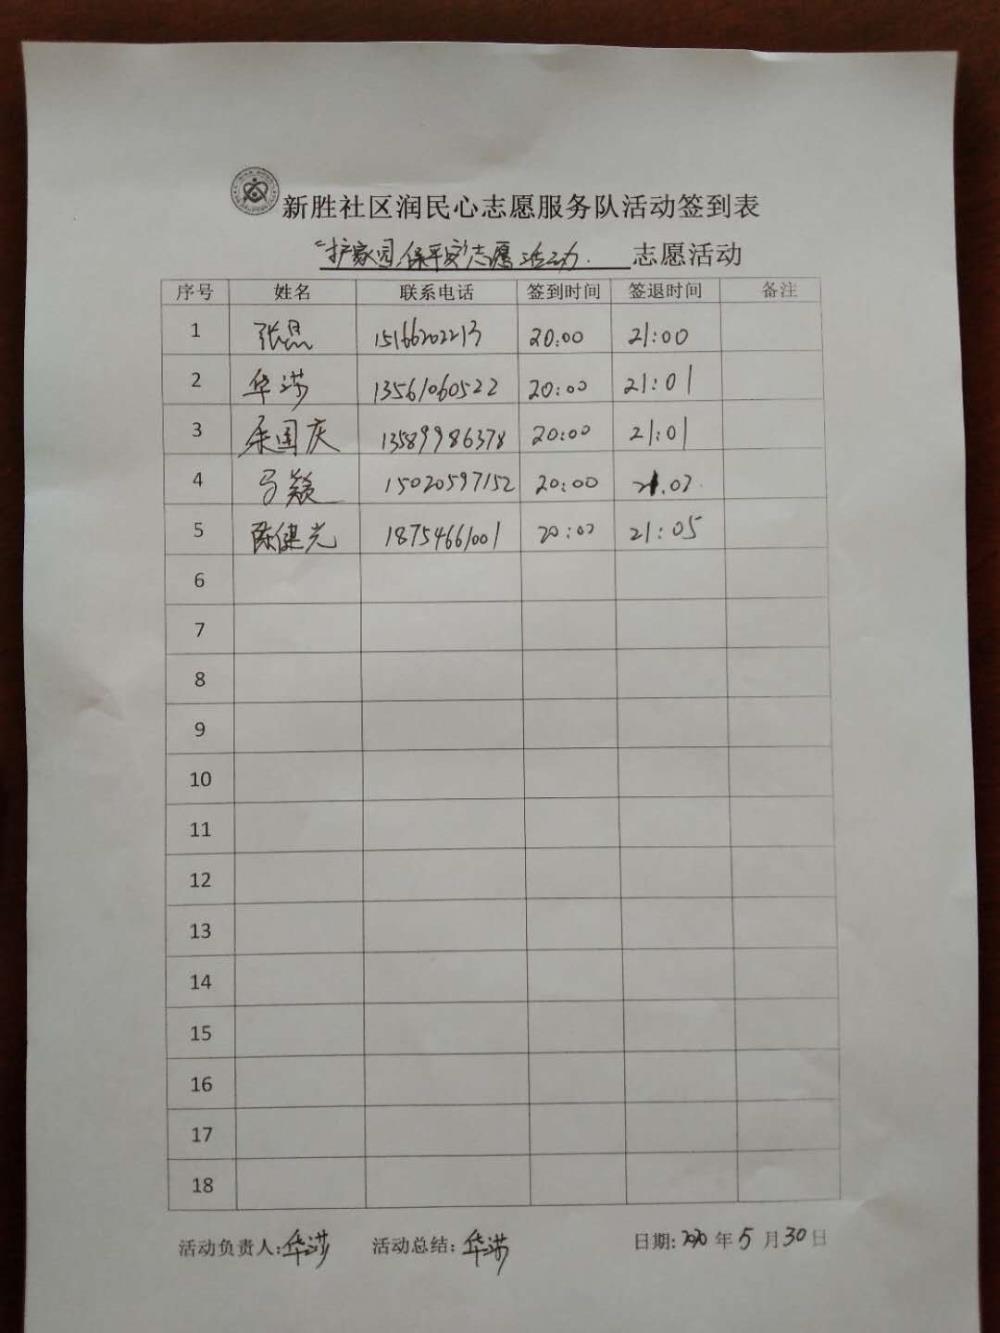 新胜社区润民心志愿服务队活动签到表
"护家园,保平安"志愿活动. 志愿活动
序号 姓名 联系电话 签到时间 签退时间 备注
1 张昆 15166202213 20:00 21:00
2 华涝 13561060522 20:00 21:01
3 国庆 13589986378 20:00 21:01
4 15020597152 20:00 21.02.
5 陈健光 18754661001 20:00 21:05
6
7
8
9
10
11
12
13
14
15
16
17
18
活动负责人: 华 活动总结: 华 日期: 2020 年 5 月 30 日